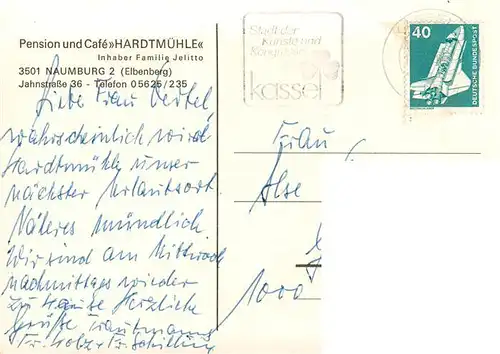 Pension und Café »HARDTMÜHLE«
Inhaber Familie Jelitto
3501 NAUMBURG 2 (Elbenberg)
Jahnstraße 36 - Telefon 05625/235
Liebe Frau Oertel
wahrscheinlich wird
Hardtmühle unser
nächster Urlaubsort.
Näheres mündlich
Wir sind am Mittwoch
nachmittags wieder
zu Hause Herzliche
Grüße Trautmanns
Fr. Holz + Fr. Schilling
Stadt der
Künste und
Kongresse
kassel
40
DEUTSCHE BUNDESPOST
Frau
Ilse
1000